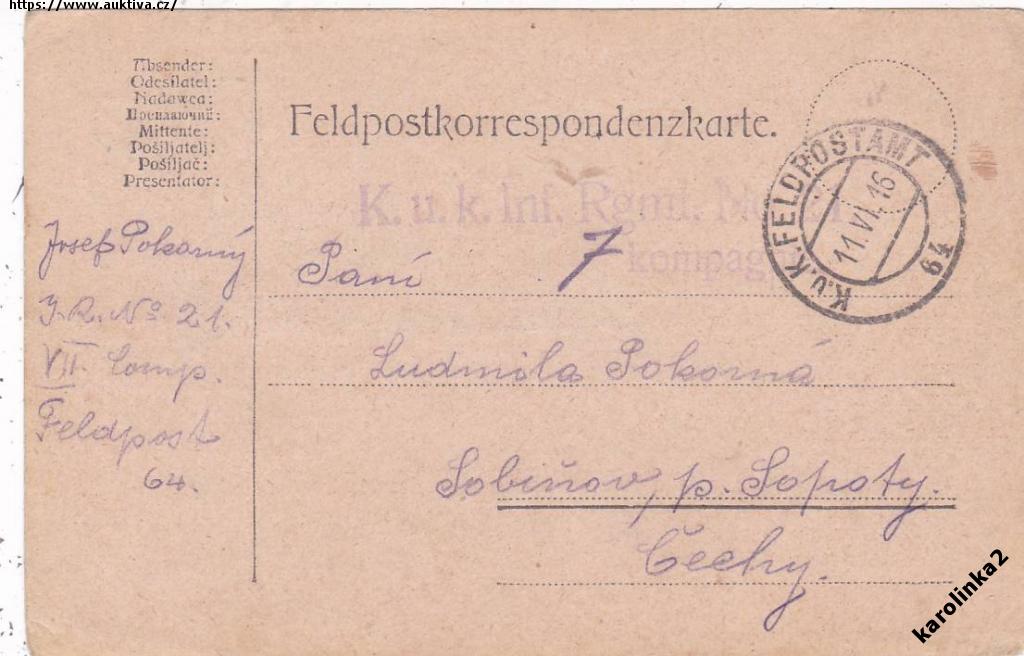 https://www.auktiva.cz/
Absender:
Odesílatel:
Nadawca:
Посилаючий:
Mittente:
Pošiljatelj:
Pošiljač:
Presentator:
Feldpostkorrespondenzkarte.
K. u. k. Inf. Rgmt. No. 21
7 kompag
K.u.K. FELDPOSTAMT
11.VI.16
64
Josef Pokorný
I.R. No 21.
VII. Comp.
Feldpost
64.
Paní
Ludmila Pokorná
Sobiňov, p. Sopoty.
Čechy.
karolinka2